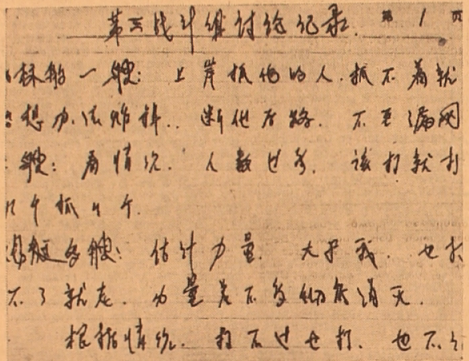 第三战斗组讨论记录. 第 1 页
一艘: 上岸抓他的人. 抓不着就
想办法炸掉. 断他后路. 不要漏网
艘: 看情况. 人数过多. 该打就打
个抓 个.
艘: 估计力量. 大于我. 也打
不了就走. 力量差不多 消灭.
根据情况. 打不过也打. 也不